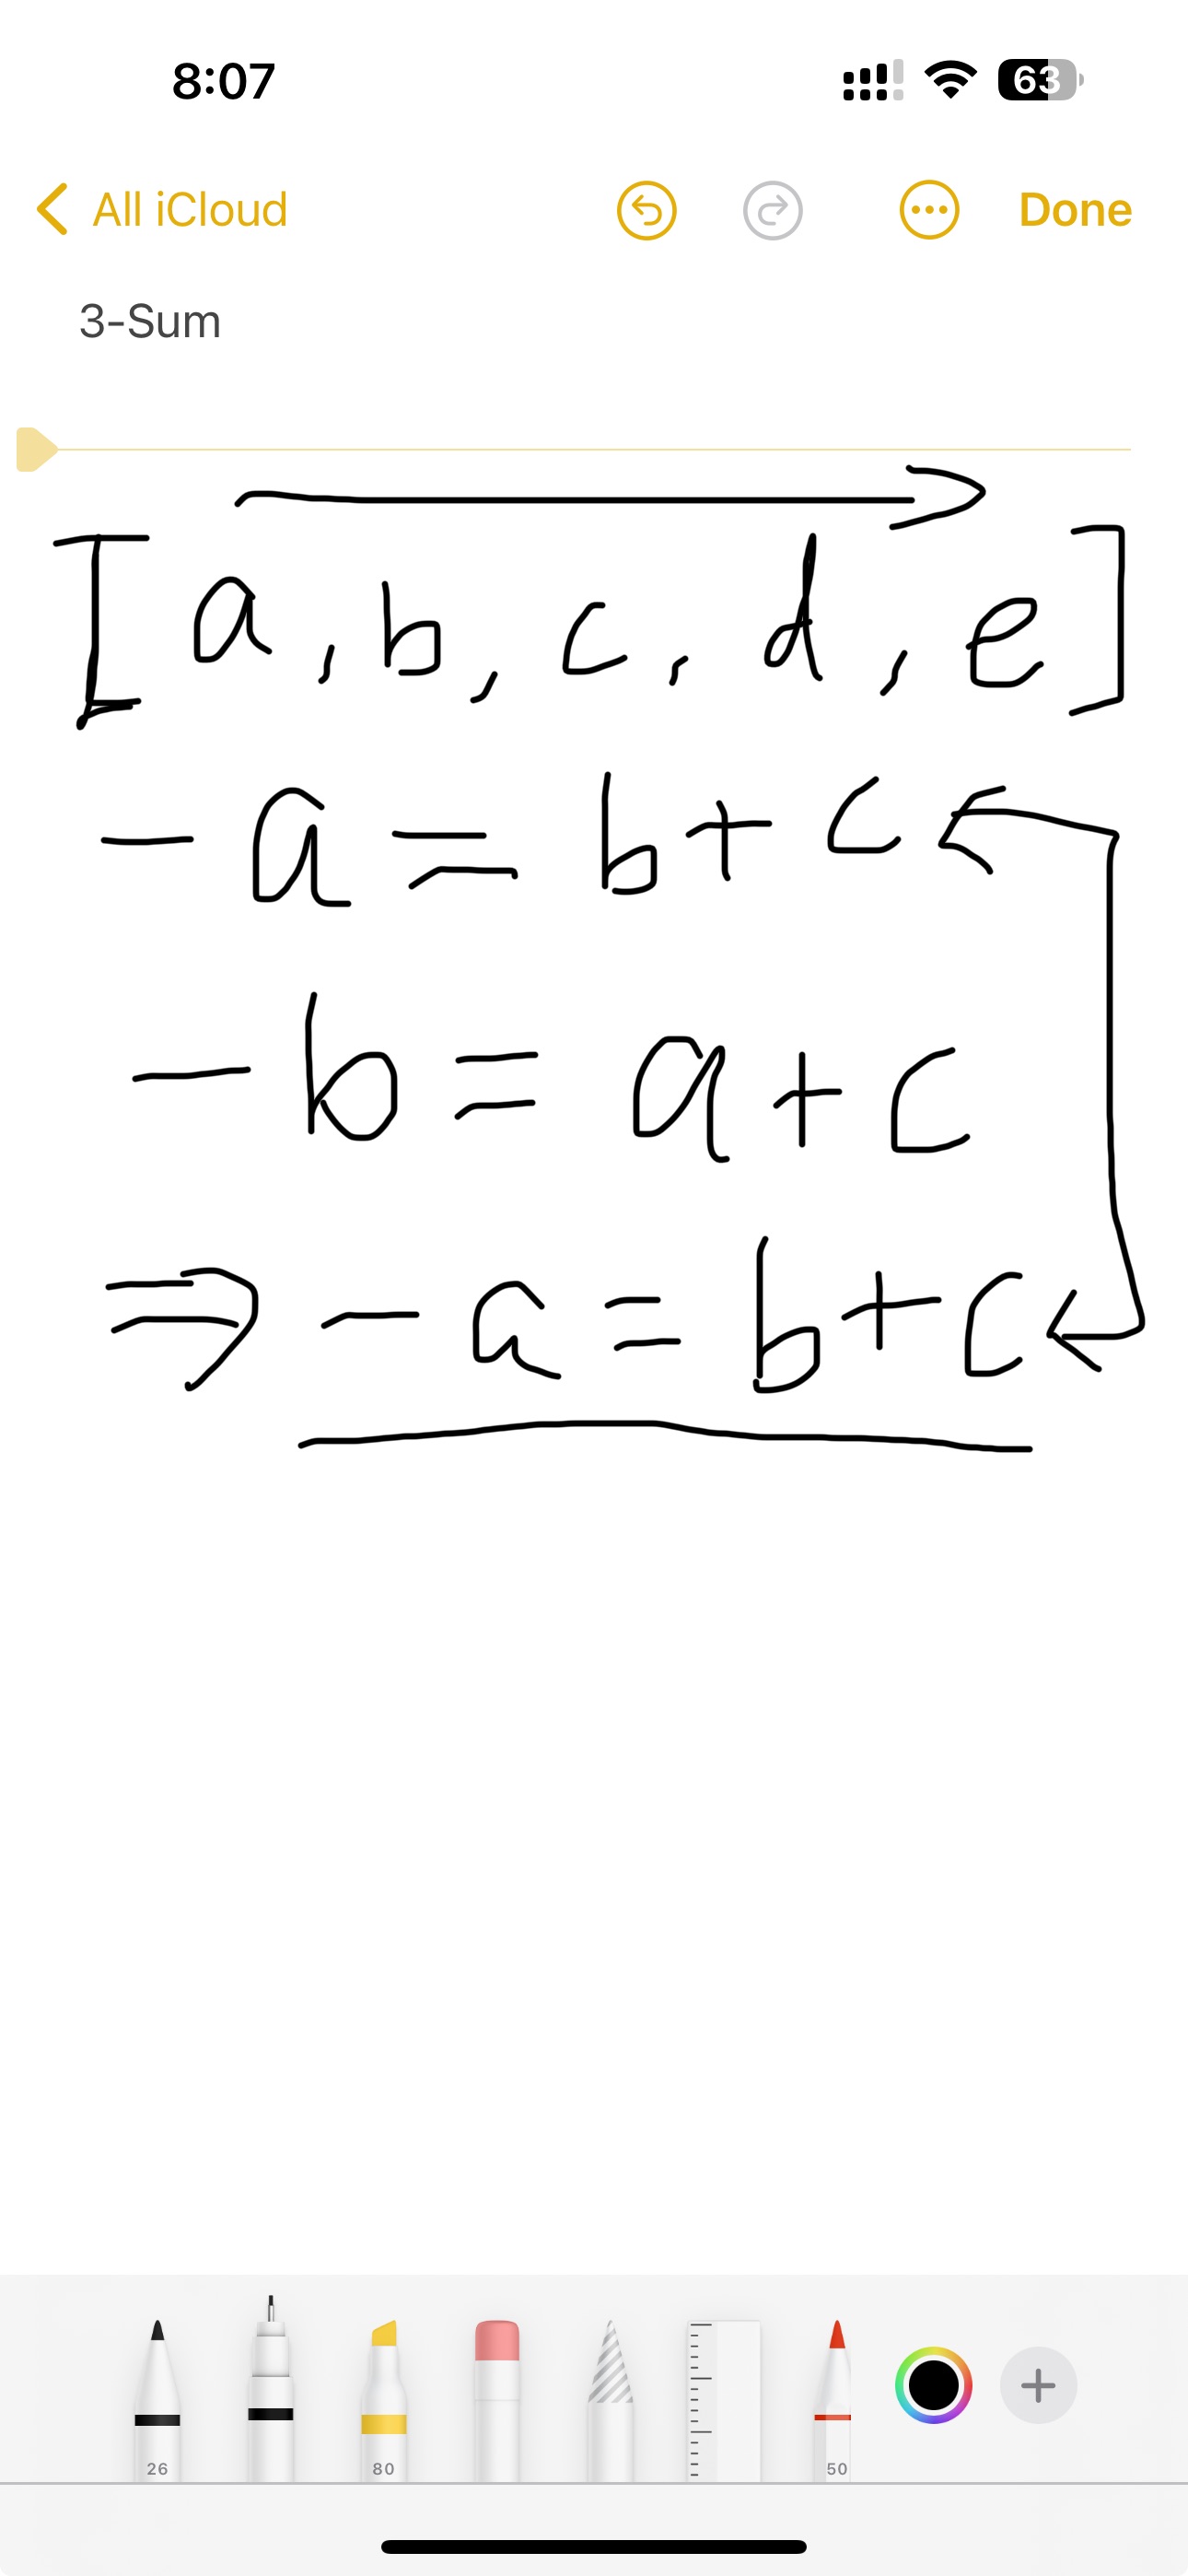 8:07 63
All iCloud Done
3-Sum
[a, b, c, d, e]
- a = b + c
- b = a + c
⇒ - a = b + c
26 80 50